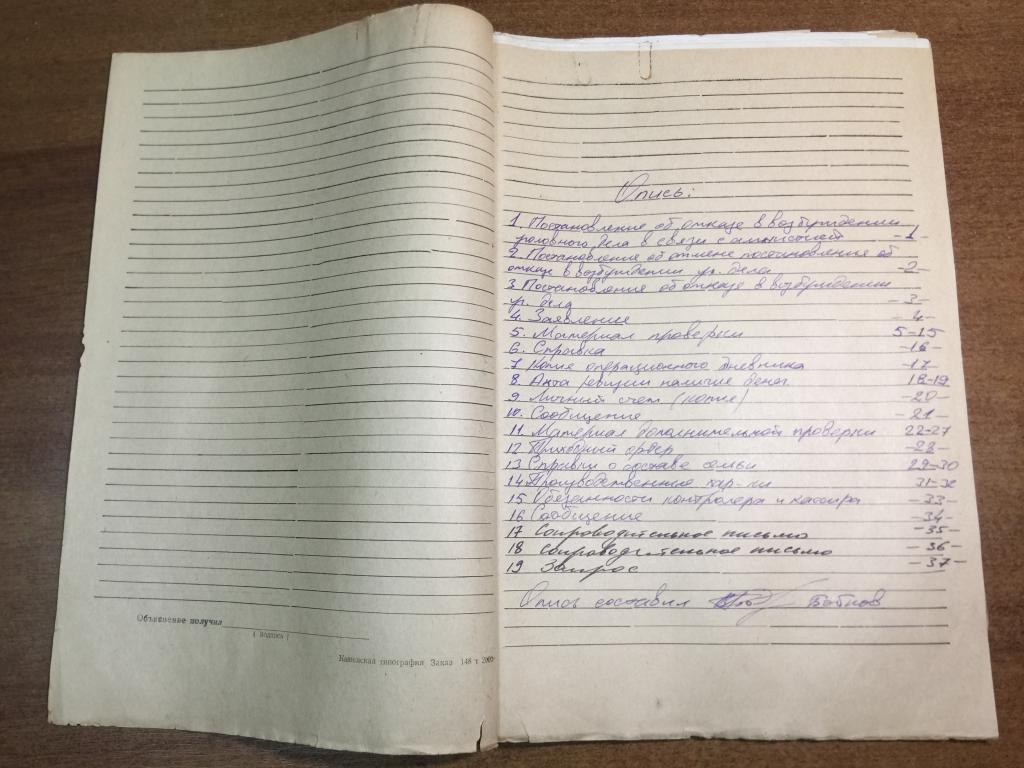 Объяснение получил
( подпись )
Каневская типография Заказ 148 т.
Опись:
1. Постановление об отказе в возбуждении
уголовного дела в связи с амнистией -1-
2. Постановление об отмене постановление об
отказе в возбуждении уг. дела -2-
3 Постановление об отказе в возбуждении
уг. дела -3-
4. Заявление -4-
5. Материал проверки 5-15
6. Справка -16-
7 Копия операционного дневника -17-
8. Акта ревизии наличие денег 18-19
9. Личный счет (копие) -20-
10. Сообщение -21-
11. Материал дополнительной проверки 22-27
12 Приходный ордер -28-
13 Справки о составе семьи 29-30
14 Производственные хар-ки 31-32
15 Обезанности контролера и кассира -33-
16 Сообщение -34-
17 Сопроводительное письмо -35-
18 сопроводительное письмо -36-
19 Запрос -37-
Опись составил